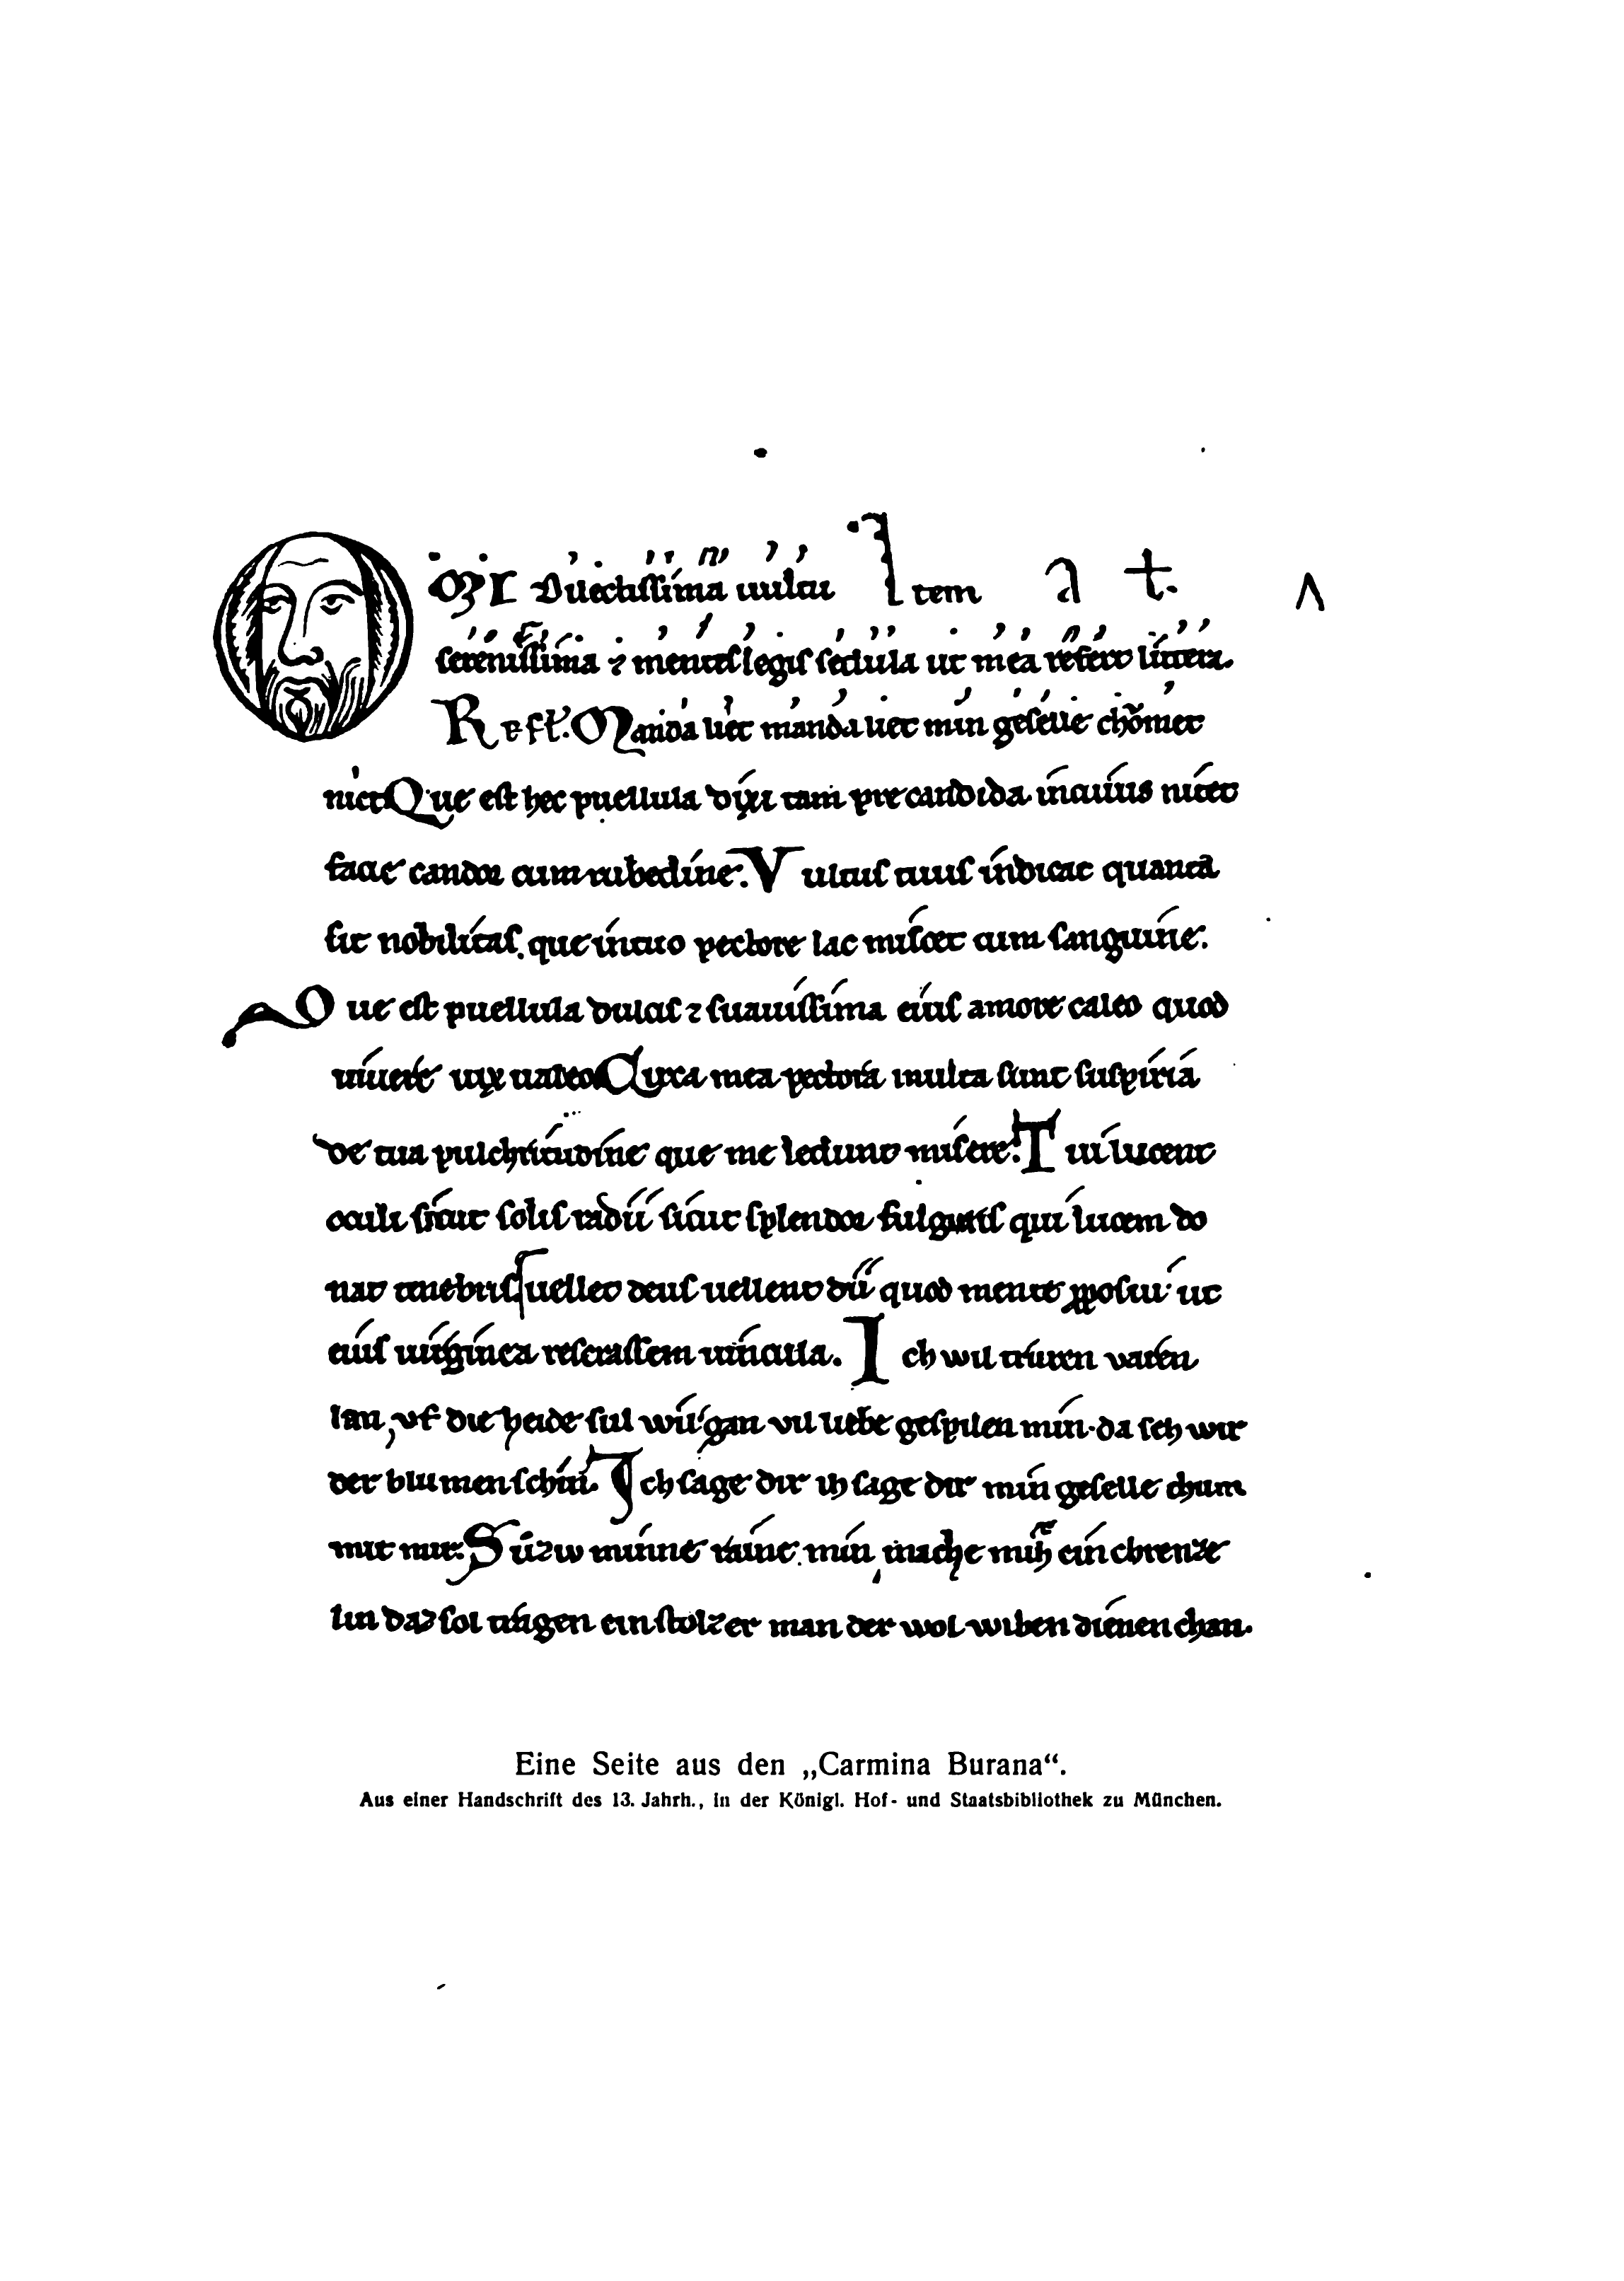 OMI Dilectissima uultu Item a t. Λ
serenissima ⁊ mentis legis sedula ut mea refert littera.
Refl. Manda liet manda liet min geselle chomet
niet Que est hec puellula dixi tam precandida in cuius nitet
facie candor cum rubedine. Vultus tuus indicat quanta
sit nobilitas. que in tuo pectore lac miscet cum sanguine.
Que est puellula dulcis ⁊ suauissima eius amore caleo quod
uiuere uix ualeo Circa mea pectora multa sunt suspiria
de tua pulchritudine que me ledunt misere. Tui lucent
oculi sicut solis radii sicut splendor fulguris qui lucem do
nat tenebris uellet deus uellent dii quod mente proposui ut
eius uirginea reserassem uincula. Ich wil truren varen
lan, vf die heide sul wir gan vil liebe gespilen min. da seh wir
der blumen schin. Ich sage dir ih sage dir min geselle chum
mit mir. Suzw minne raine min, mache mih ein chrenze
lin daz sol tragen ein stolzer man der wol wiben dienen chan.
Eine Seite aus den „Carmina Burana“.
Aus einer Handschrift des 13. Jahrh., in der Königl. Hof- und Staatsbibliothek zu München.